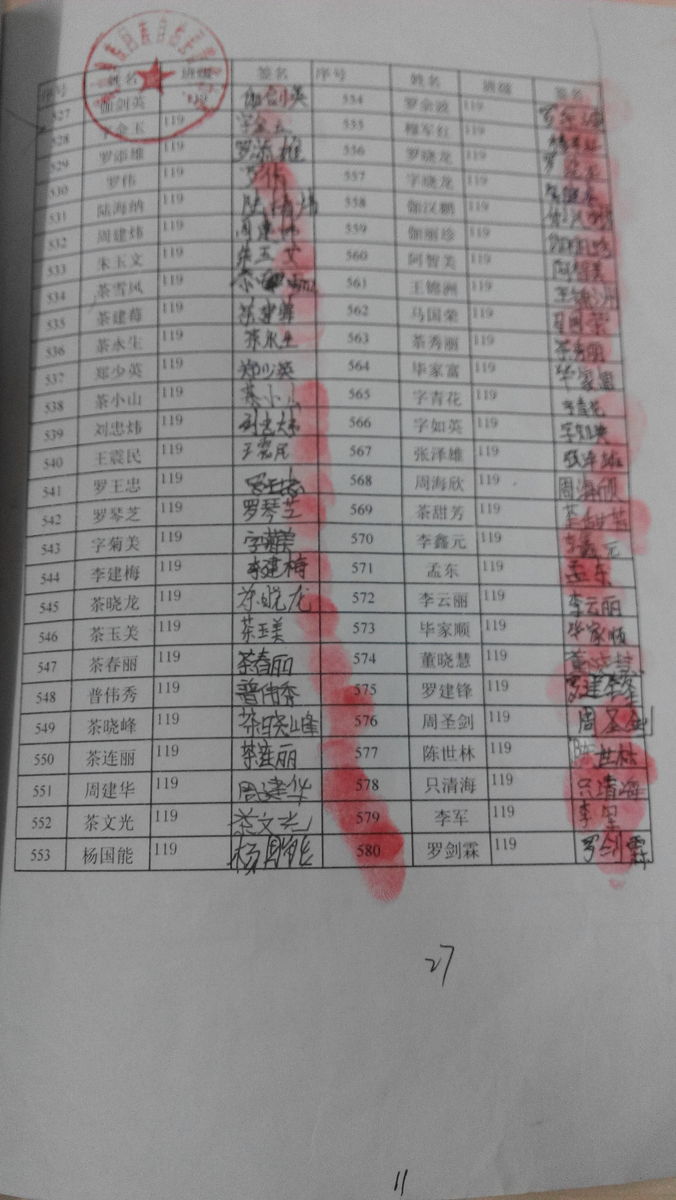 序号 姓名 班级 签名 序号 姓名 班级 签名
527 伽剑英 119 伽剑英 554 罗余波 119
528 字金玉 119 字金玉 555 穆军红 119
529 罗添雄 119 罗添雄 556 罗晓龙 119
530 罗伟 119 罗伟 557 字晓龙 119
531 陆海纳 119 558 伽汉鹏 119
532 周建炜 119 周建炜 559 伽丽珍 119
533 朱玉文 119 朱玉文 560 阿智美 119 阿智美
534 茶雪凤 119 561 王锦洲 119 王锦洲
535 茶建莓 119 562 马国荣 119
536 茶永生 119 茶永生 563 茶秀丽 119 茶秀丽
537 郑少英 119 郑少英 564 毕家富 119 毕家富
538 茶小山 119 茶小山 565 字青花 119 字青花
539 刘忠炜 119 刘忠炜 566 字如英 119
540 王震民 119 王震民 567 张泽雄 119
541 罗王忠 119 568 周海欣 119 周海欣
542 罗琴芝 119 罗琴芝 569 茶甜芳 119
543 字菊美 119 字菊美 570 李鑫元 119 李鑫元
544 李建梅 119 李建梅 571 孟东 119 孟东
545 茶晓龙 119 茶晓龙 572 李云丽 119 李云丽
546 茶玉美 119 茶玉美 573 毕家顺 119 毕家顺
547 茶春丽 119 茶春丽 574 董晓慧 119 董晓慧
548 普伟秀 119 普伟秀 575 罗建锋 119 罗建锋
549 茶晓峰 119 茶晓峰 576 周圣剑 119 周圣剑
550 茶连丽 119 茶连丽 577 陈世林 119 陈世林
551 周建华 119 周建华 578 只清海 119 只清海
552 茶文光 119 茶文光 579 李军 119 李军
553 杨国能 119 杨国能 580 罗剑霖 119 罗剑霖
27
11